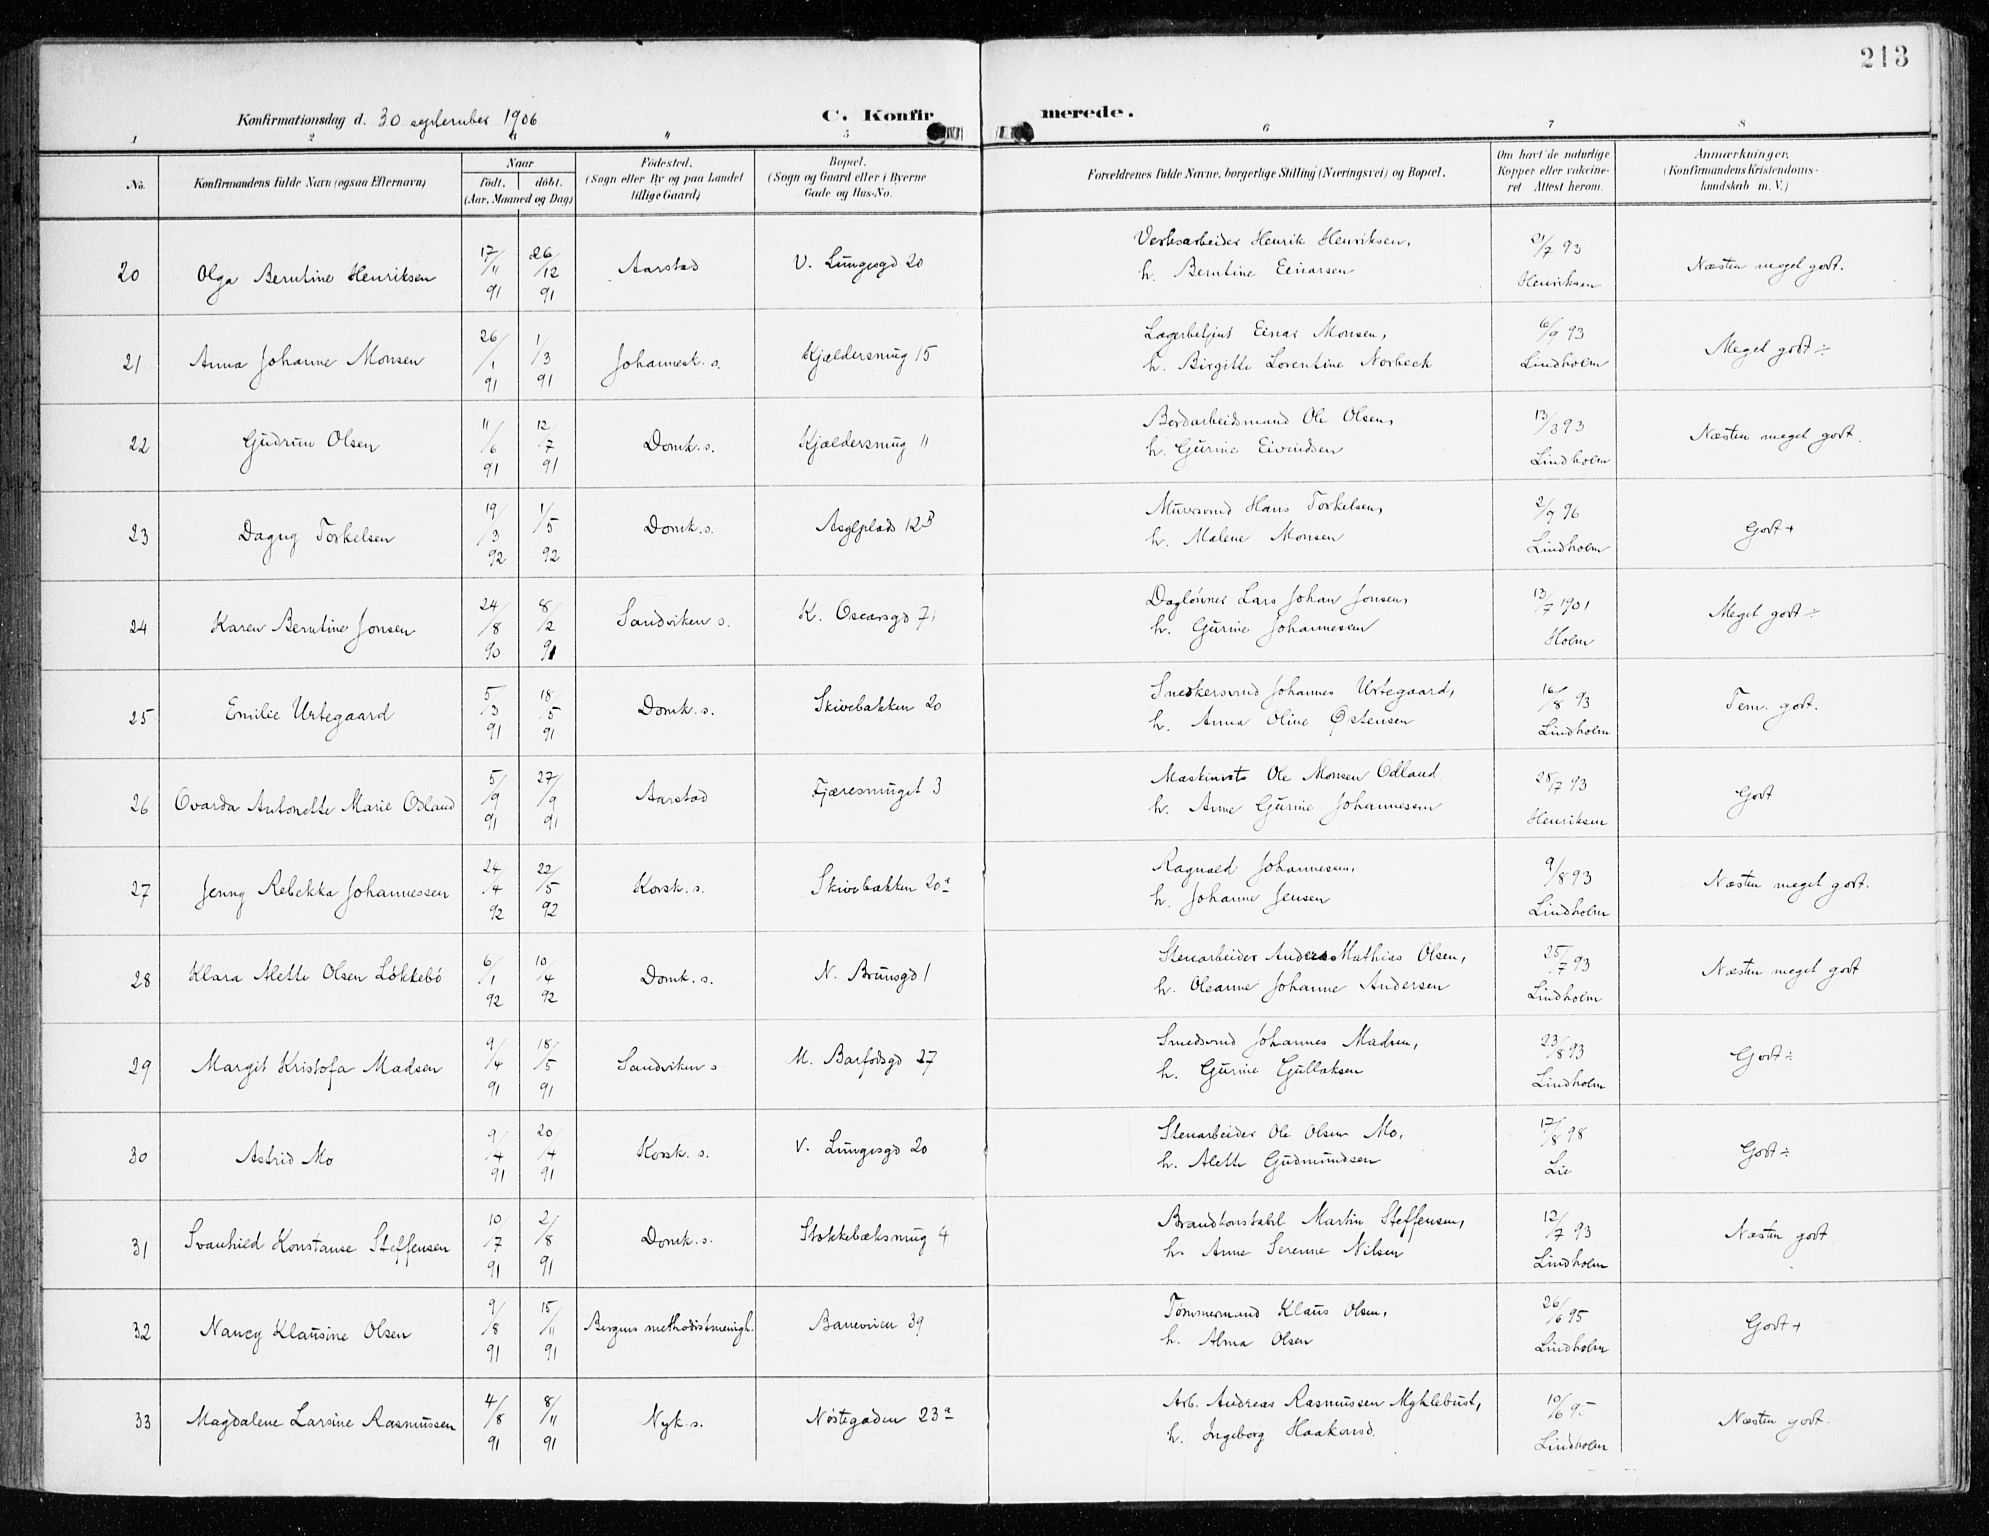 213
Konfirmationsdag d. 30 september 1906
C. Konfirmerede.
1 2 " " 5 6 7 8
No. Konfirmandens fulde Navn (ogsaa Efternavn) Naar födt. döbt. (Aar, Maaned og Dag) Födested. (Sogn eller By og paa Landet tillige Gaard) Bopæl. (Sogn og Gaard eller i Byerne Gade og Hus-No. Forældrenes fulde Navne, borgerlige Stilling (Næringsvei) og Bopæl. Om havt de naturlige Kopper eller vakcineret Attest herom. Anmærkninger. (Konfirmandens Kristendomskundskab m. V.)
20 Olga Berntine Henriksen 17/11 91 26/12 91 Aarstad V. Lungesgd 20 Verksarbeider Henrik Henriksen, h. Berntine Einarsen 21/7 93 Henriksen Næsten meget godt.
21 Anna Johanne Monsen 26/1 91 1/3 91 Johannesk. s. Kjældersmug 15 Lagerbetjent Einar Monsen, h. Birgitte Lorentine Norbeck 6/9 93 Lindholm Meget godt ÷
22 Gudrun Olsen 11/6 91 12/7 91 Domk. s. Kjældersmug 11 Bordarbeidsmand Ole Olsen, h. Gurine Eivindsen 13/3 93 Lindholm Næsten meget godt.
23 Dagny Torkelsen 19/3 92 1/5 92 Domk. s. Asylplads 12 Mursvend Hans Torkelsen, h. Malene Monsen 2/9 96 Lindholm Godt +
24 Karen Berntine Jonsen 24/8 90 8/2 91 Sandviken s. K. Oscarsgd 71 Daglönner Lars Johan Jonsen, h. Gurine Johannessen 13/7 1901 Holm Meget godt ÷
25 Emilie Urtegaard 5/3 91 18/5 91 Domk. s. Skivebakken 20 Snedkersvend Johannes Urtegaard, h. Anna Oline Östensen 16/8 93 Lindholm Tem. godt.
26 Ovarda Antonette Marie Odland 5/9 91 27/9 91 Aarstad Fjæresmuget 3 Maskinists Ole Monsen Odland h. Anne Gurine Johannessen 28/7 93 Henriksen Godt
27 Jenny Rebekka Johannessen 24/4 92 22/5 92 Korsk. s. Skivebakken 20a Ragnvald Johannesen, h. Johanne Jensen 9/8 93 Lindholm Næsten meget godt.
28 Klara Alette Olsen Lökkebö 6/1 92 10/4 92 Domk. s. N. Brunsgd 1 Stenarbeider Anders Mathias Olsen, h. Oleanne Johanne Andersen 25/7 93 Lindholm Næsten meget godt
29 Margit Kristofa Madsen 9/4 91 18/5 91 Sandviken s M. Barfodsgd 27 Smedsvend Johannes Madsen, h. Gurine Gullaksen 23/8 93 Lindholm Godt ÷
30 Astrid Mo 9/4 91 20/4 91 Korsk. s. V. Lungesgd 20 Stenarbeider Ole Olsen Mo, h. Alette Gudmundsen 17/8 98 Lie Godt ÷
31 Svanhild Konstanse Steffensen 10/7 91 2/8 91 Domk. s. Stokkebæksmug 4 Brandkonstabel Martin Steffensen, h. Anne Serenne Nilsen 12/7 93 Lindholm Næsten godt
32 Nancy Klausine Olsen 9/8 91 15/11 91 Bergens methodistmenigh. Baneveien 39 Tömmermand Klaus Olsen, h. Alma Olsen 26/6 95 Lindholm Godt +
33 Magdalene Larsine Rasmussen 4/8 91 8/11 91 Nyk. s. Nöstegaden 23a Arb. Andreas Rasmussen Myklebust, h. Ingeborg Haakonsd. 10/6 95 Lindholm Næsten godt.